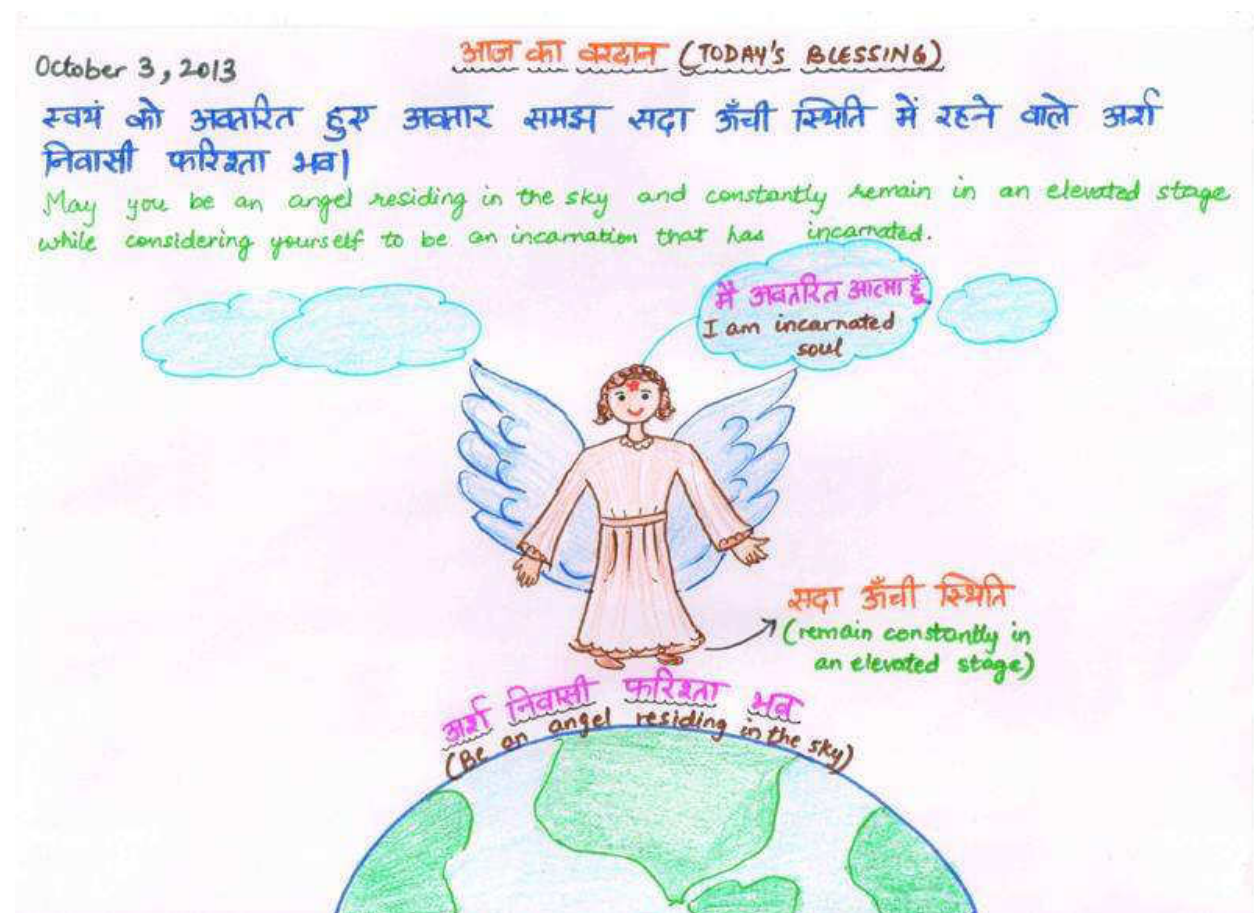 October 3, 2013
आज का वरदान (TODAY'S BLESSING)
स्वयं को अवतरित हुए अवतार समझ सदा ऊँची स्थिति में रहने वाले अर्श
निवासी फरिश्ता भव।
May you be an angel residing in the sky and constantly remain in an elevated stage
while considering yourself to be an incarnation that has incarnated.
मैं अवतरित आत्मा हूँ
I am incarnated
soul
सदा ऊँची स्थिति
(remain constantly in
an elevated stage)
अर्श निवासी फरिश्ता भव
(Be an angel residing in the sky)